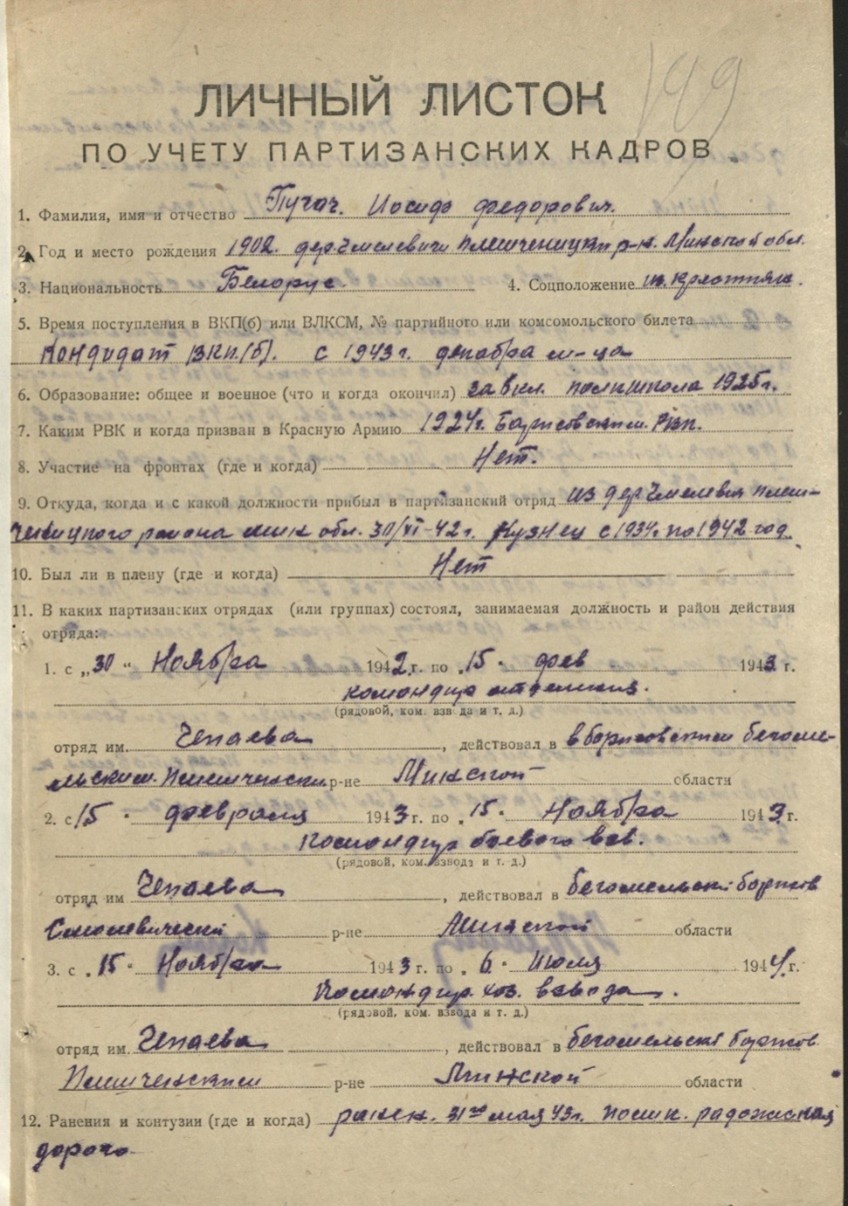 149
ЛИЧНЫЙ ЛИСТОК
ПО УЧЕТУ ПАРТИЗАНСКИХ КАДРОВ
1. Фамилия, имя и отчество Пугач. Иосиф Федорович.
2. Год и место рождения 1902. дер Чмелевичи Плещеницкий р-н. Минской обл.
3. Национальность Белорус. 4. Соцположение из крестьян.
5. Время поступления в ВКП(б) или ВЛКСМ, № партийного или комсомольского билета
Кондидат ВКП.(б). с 1943 г. декабря м-ца
6. Образование: общее и военное (что и когда окончил) 1925 г.
7. Каким РВК и когда призван в Красную Армию 1924 г. Борисовским. РВК.
8. Участие на фронтах (где и когда) Нет.
9. Откуда, когда и с какой должности прибыл в партизанский отряд из дер Чмелевич Плеще-
ницкого района мин обл. 30/VI-42 г. Кузнец с 1934 г. по 1942 год.
10. Был ли в плену (где и когда) Нет
11. В каких партизанских отрядах (или группах) состоял, занимаемая должность и район действия
отряда:
1. с „30“ Ноября 1942 г. по „15. фев 1943 г.
командир отделения.
(рядовой, ком. взвода и т. д.)
отряд им. Чепаева, действовал в в борисовском бегоме-
льским. Плещенском р-не Минской области
2. с 15. февраля 1943 г. по „15. Ноября 1943 г.
Командир боевого взв.
(рядовой, ком. взвода и т. д.)
отряд им Чепаева, действовал в бегомельский борисов
Смолевический р-не Минской области
3. с „15. Ноября 1943 г. по „6. Июля 1944 г.
Командир. хоз. взвода.
(рядовой, ком. взвода и т. д.)
отряд им. Чепаева, действовал в бегомельский борисов
Плещенским р-не Минской области
12. Ранения и контузии (где и когда) ранен. 31го мая 43 г.
дорога